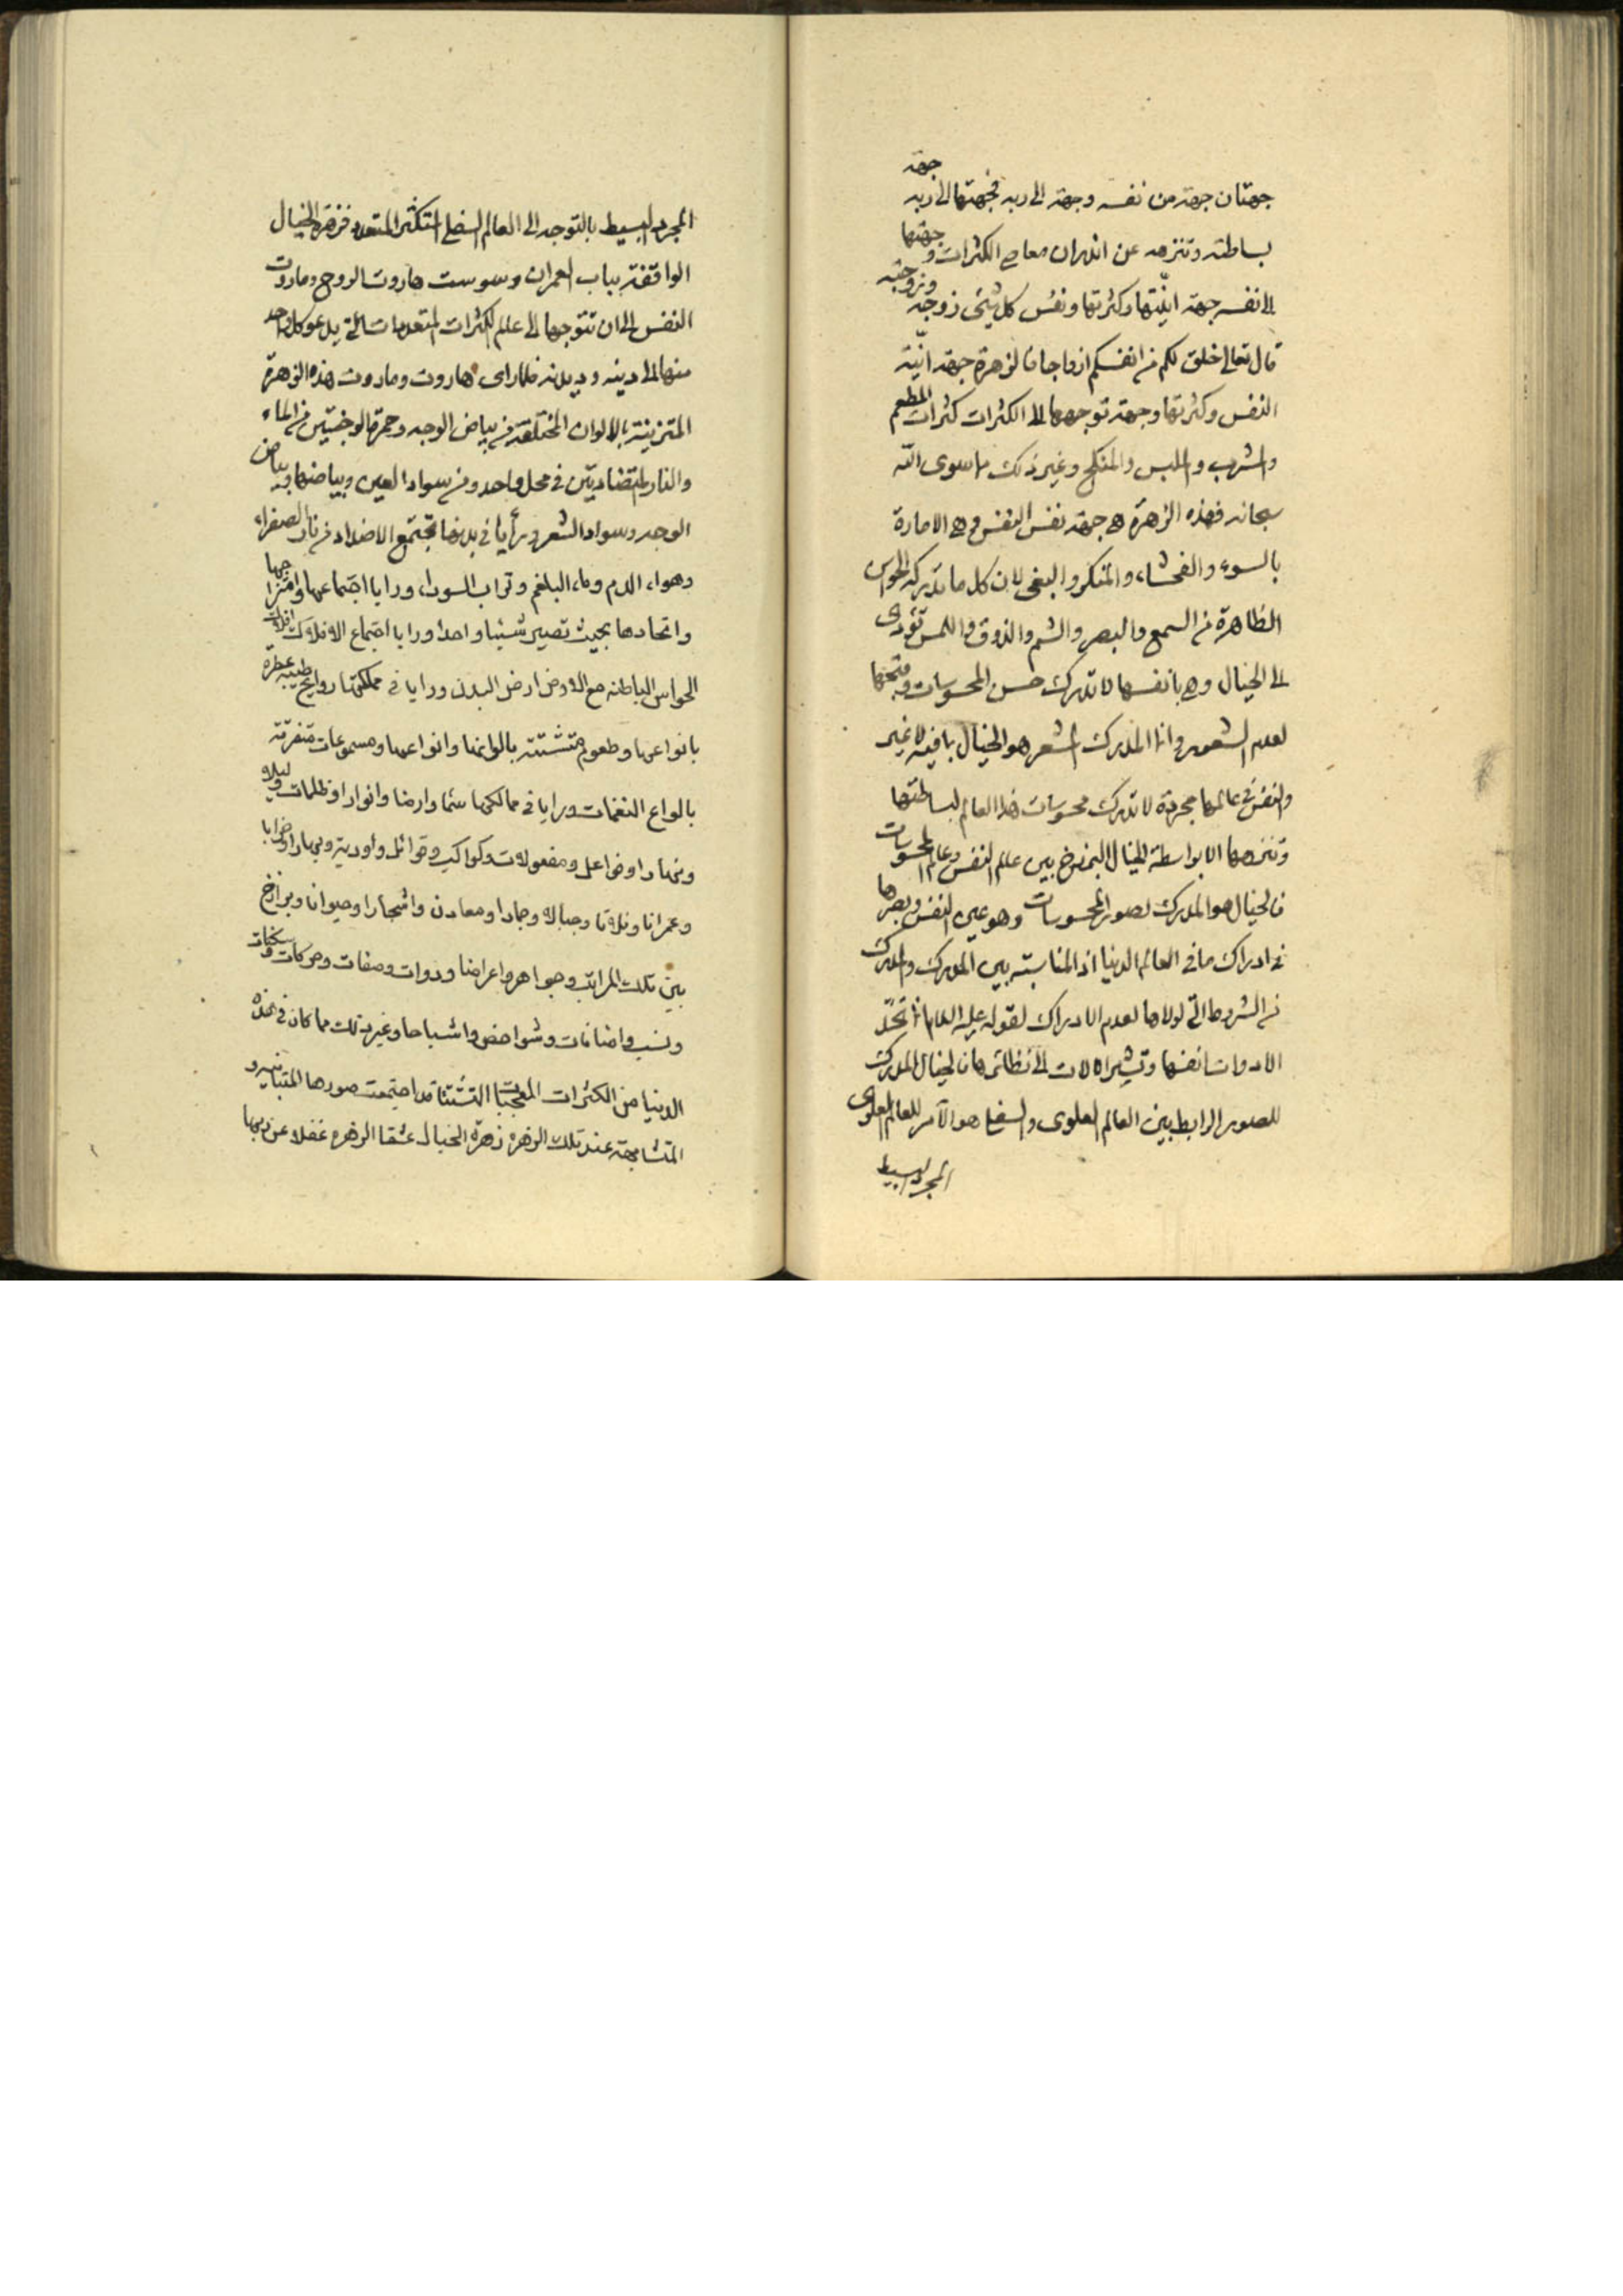 جهتان جهة من نفسه وجهة الى ربه فجهتها الى ربه جهة
بساطته وتنزهه عن ادران معاصي الكثرات وجهتها
الى نفسه جهة انيتها وكثرتها ونفس كل شيء زوجه وزوجته
قال تعالى خلق لكم من انفسكم ازواجا فالزهرة جهة انية
النفس وكثرتها وجهة توجهها الى الكثرات كثرات المطعم
والمشرب والملبس والمنكح وغير ذلك ما سوى الله
سبحانه فهذه الزهرة هي جهة نفس النفس وهي الامارة
بالسوء والفحشاء والمنكر والبغي لان كل ما تدركه الحواس
الظاهرة من السمع والبصر والشم والذوق واللمس تؤدي
الى الخيال وهي بانفسها لا تدرك حسن المحسوسات وقبحها
لعدم الشعور وانما المدرك المشعر هو الخيال بما فيه لا غير
والنفس في عالمها مجردة لا تدرك محسوسات هذا العالم لبساطتها
وتنزهها الا بواسطة الخيال البرزخ بين عالم النفس وعالم المحسوسات
فالخيال هو المدرك لصور المحسوسات وهو عين النفس وبصرها
في ادراك ما في العالم الدنيا اذ المناسبة بين المدرك والمدرك
من الشروط التي لولاها لعدم الادراك لقوله عليه السلام انما تحد
الادوات انفسها وتشير الالات الى نظائرها فالخيال المدرك
للصور الرابط بين العالم العلوي والسفلي هو الآمر للعالم العلوي
المجرد البسيط
المجرد البسيط بالتوجه الى العالم السفلي المتكثر المتعدد فزهرة الخيال
الواقفة بباب العمران وسوست هاروت الروح وماروت
النفس الى ان تتوجها الى عالم الكثرات المتعددات التي يدعو كل واحد
منها الى دينه وديدنه فلما راى هاروت وماروت هذه الزهرة
المتزينة بالالوان المختلفة من بياض الوجه وحمرة الوجنتين من الماء
والنار المتضاديّن في محل واحد ومن سواد العين وبياضها وبياض
الوجه وسواد الشعر ورأيا في بدنها تجتمع الاضداد من نار الصفراء
وهواء الدم وماء البلغم وتراب السوداء ورايا اجتماعها وامتزاجها
واتحادها بحيث تصير شيئا واحدا ورايا اجتماع الافلاك افلاك
الحواس الباطنه مع الارض ارض البدن ورايا في مملكتها روايح طيبة عطرة
بانواعها وطعوم متشتتة بالوانها وانواعها ومسموعات متفرقة
بانواع النغمات ورايا في ممالكها سماء وارضا وانوارا وظلمات وليلا
ونهارا وفواعل ومفعولات وكواكب وقوائل وأودية وبحارا وخرابا
وعمرانا وفلاتا وجبالا وجمادا ومعادن واشجارا وحيوانا وبرازخ
بين تلك المراتب وجواهر واعراضا وذوات وصفات وحركات وسكنات
ونسب واضافات وشواخص واشباحا وغير ذلك مما كان في هذه
الدنيا من الكثرات قد اجتمعت صورها المتباينه و
المتشابهة عند تلك الزهره زهرة الخيال عشقا الزهره غفلا عن ربهما